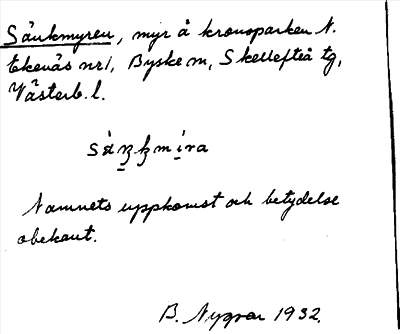 Sänkmyren, myr å kronoparken N.
Ekenäs nr1, Byske sn, Skellefteå tg,
Västerb. l.
Namnets uppkomst och betydelse
obekant.
B. Nygren 1932.